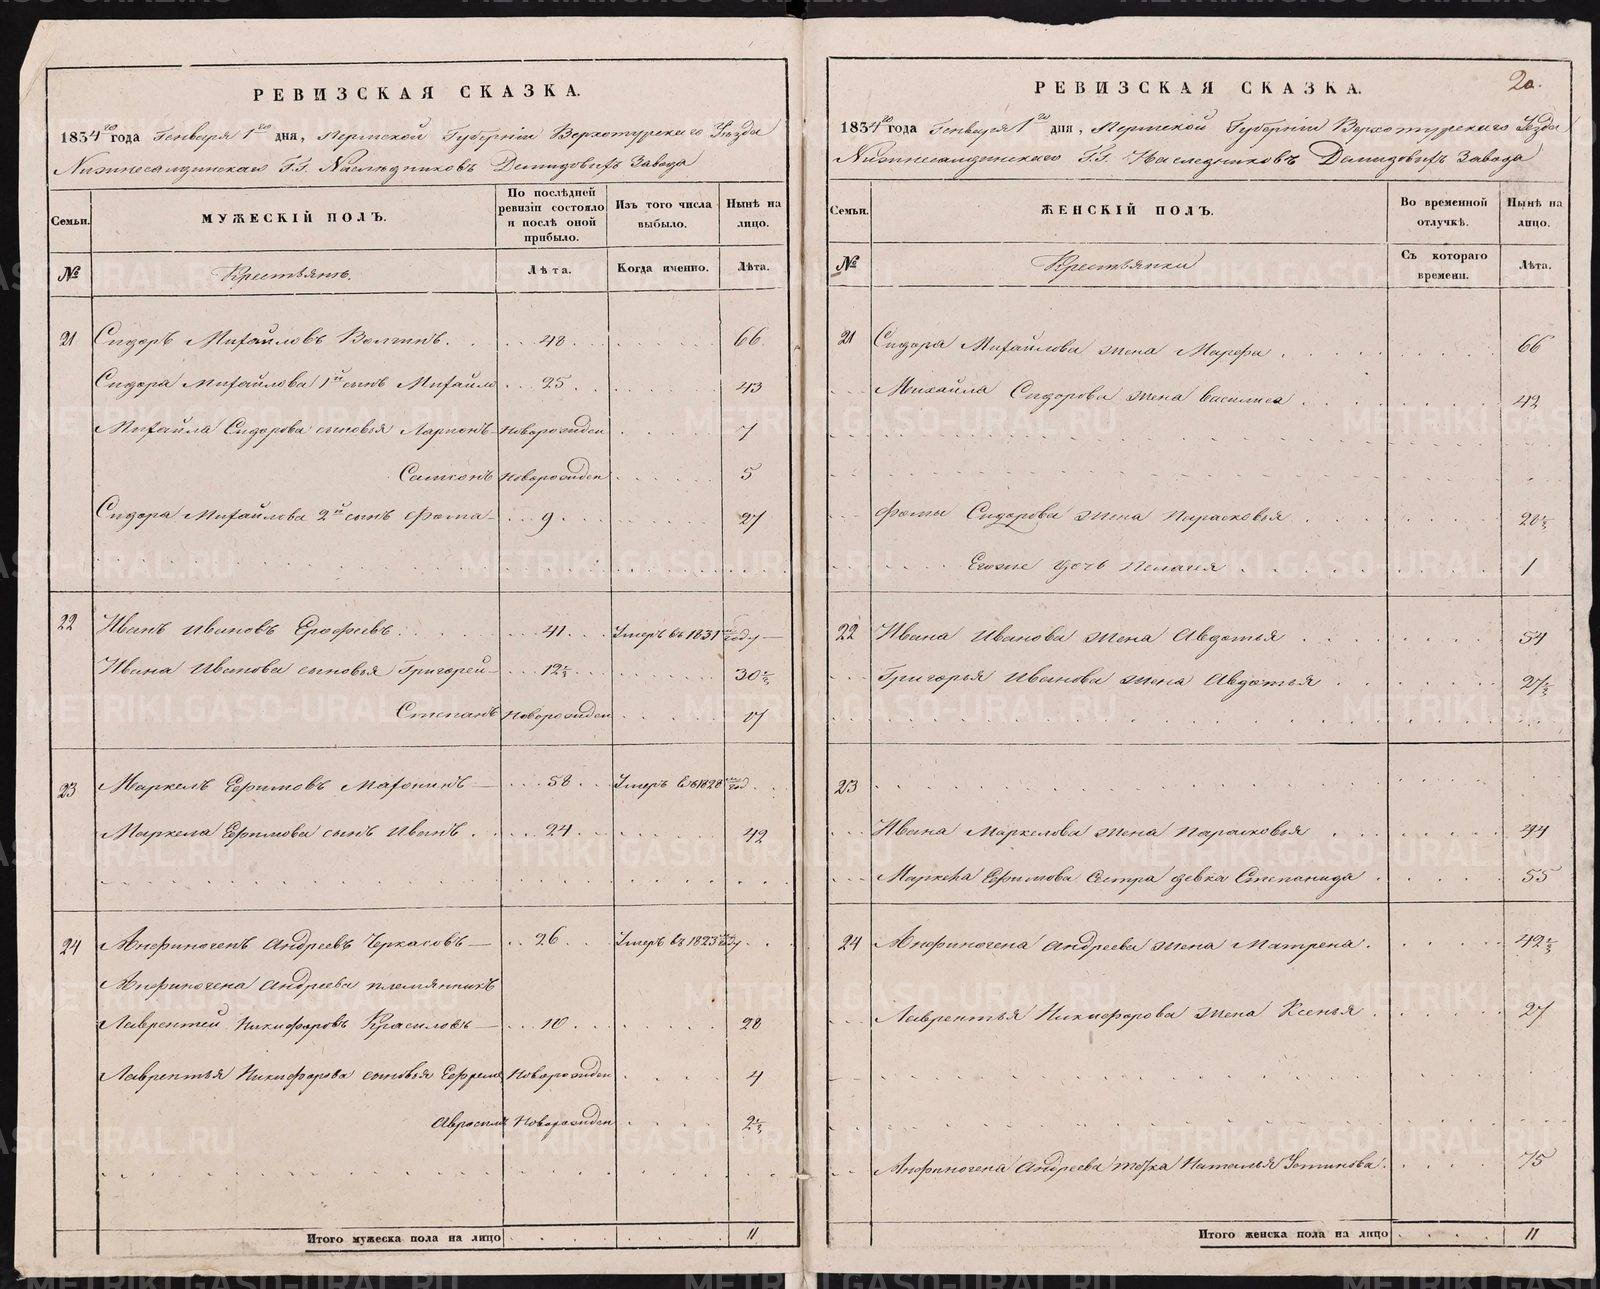 РЕВИЗСКАЯ СКАЗКА.
1834го года Генваря 1го дня, Пермской Губерніи Верхотурскаго Уѣзда
Нижнесалдинскаго Г.Г. Наслѣдниковъ Демидовыхъ Завода
Семьи.
МУЖЕСКІЙ ПОЛЪ.
По послѣдней ревизіи состояло и послѣ оной прибыло.
Изъ того числа выбыло.
Нынѣ на лицо.
№
Крестьянъ.
Лѣта.
Когда именно.
Лѣта.
21 Сидоръ Михайловъ 48 66
Сидора Михайлова 1й сынъ Михайло 25 43
Михайла Сидорова сыновья Ларионъ Новорожден 7
Самсонъ Новорожден 5
Сидора Михайлова 2й сынъ Фома 9 27
22 Иванъ Ивановъ Ерофѣевъ 41 Умеръ въ 1831м году
Ивана Иванова сыновья Григорей 12½ 30½
Степанъ Новорожден 17
23 Маркелъ Ефимовъ Махонинъ 58 Умеръ въ 1828м год
Маркела Ефимова сынъ Иванъ 24 42
24 Анфиногенъ Андреевъ Черкасовъ 26 Умеръ въ 1823 году
Анфиногена Андреева племянникъ
Лаврентей Никифоровъ Красиловъ 10 28
Лаврентья Никифорова сыновья Ефремъ Новорожден 4
Новорожден 2½
Итого мужеска пола на лицо 11
20.
РЕВИЗСКАЯ СКАЗКА.
1834го года Генваря 1го дня, Пермской Губерніи Верхотурскаго Уѣзда
Нижнесалдинскаго Г.Г. Наследниковъ Демидовыхъ Завода
Семьи.
ЖЕНСКІЙ ПОЛЪ.
Во временной отлучкѣ.
Нынѣ на лицо.
№
Крестьянки
Съ котораго времени.
Лѣта.
21 Сидора Михайлова жена Марфа 66
Михайла Сидорова жена Василиса 42
Фомы Сидорова жена Парасковья
Егоже дочь Пелагея 1
22 Ивана Иванова жена Авдотья
Григорья Иванова жена Авдотья 27½
23
Ивана Маркелова жена Парасковья 44
Маркела Ефимова Сестра девка Степанида 55
24 Анфиногена Андреева жена Матрена 42½
Лаврентья Никифорова жена Ксенья 27
Анфиногена Андреева тетка Наталья Устинова 75
Итого женска пола на лицо 11
METRIKI.GASO-URAL.RU